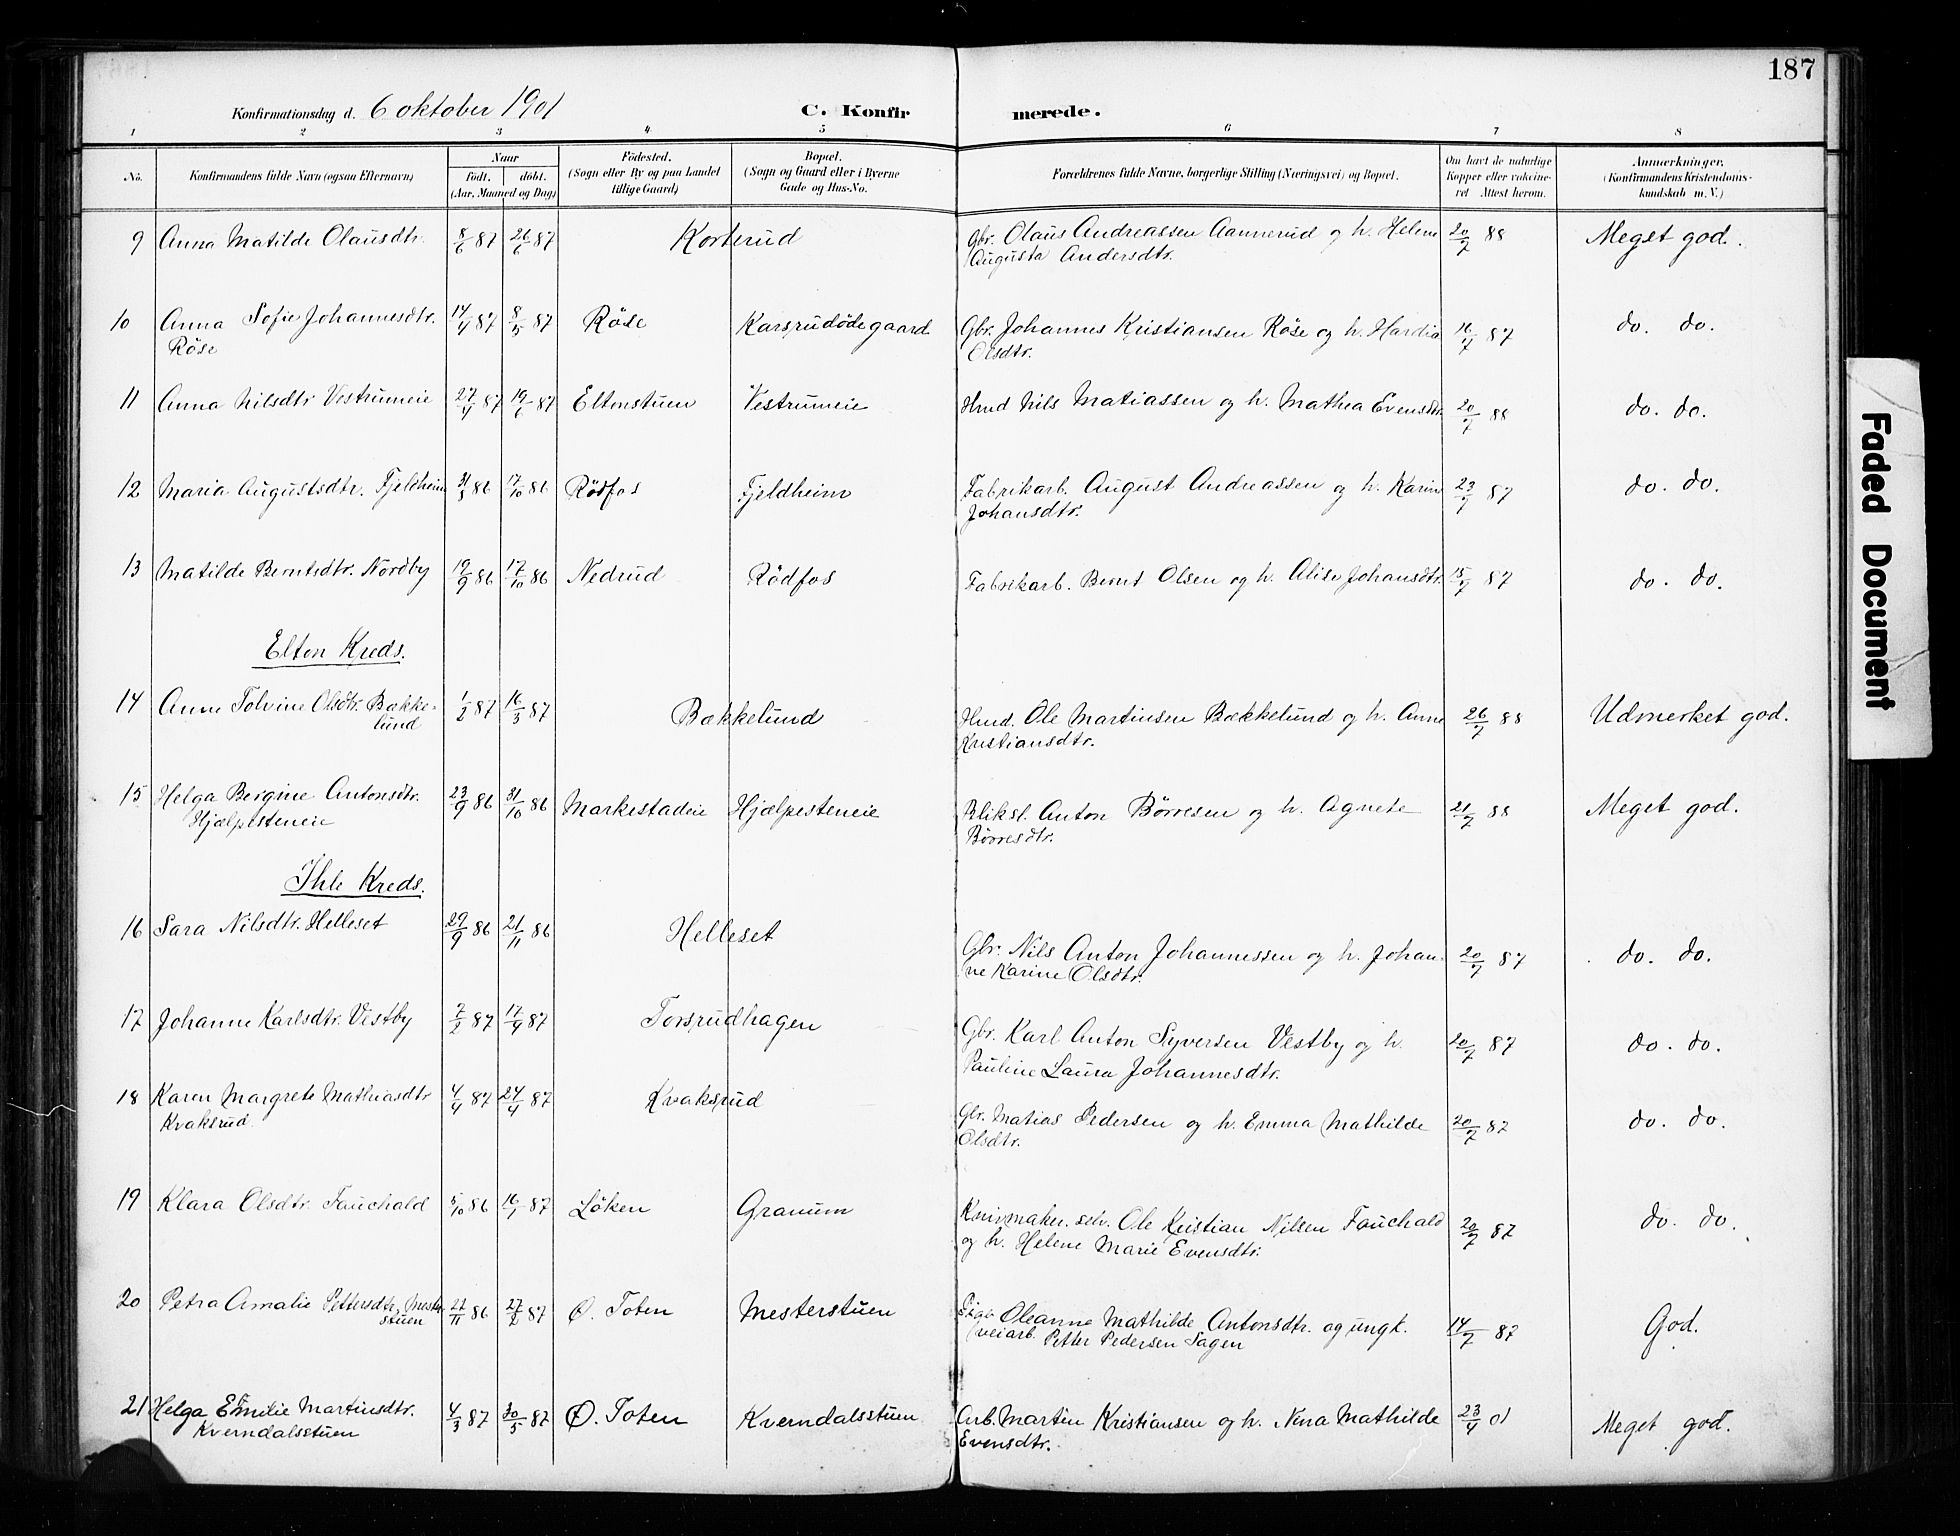 187
Konfirmationsdag d. 6 oktober 1901 C. Konfirmerede.
1 2 3 4 5 6 7 8
No. Konfirmandens fulde Navn (ogsaa Efternavn) Naar født. døbt. (Aar, Maaned og Dag) Fødested. (Sogn eller By og paa Landet tillige Gaard) Bopæl. (Sogn og Gaard eller i Byerne Gade og Hus-No. Forældrenes fulde Navne, borgerlige Stilling (Næringsvei) og Bopæl. Om havt de naturlige Kopper eller vaccineret Attest herom. Anmærkninger. (Konfirmandens Kristendomskundskab m. V.)
9 Anna Matilde Olausdtr. 8/6 87 26/6 87 Korterud Gbr. Olaus Andreassen Aannerud og h. Helene 20/7 88 Meget god.
Augusta Andersdtr.
10 Anna Sofie Johannesdtr. 14/4 87 8/5 87 Røse Karsrudødegaard Gbr. Johannes Kristiansen Røse og h. Hardia 16/7 87 do. do.
Røse Olsdtr.
11 Anna Nilsdtr Vestrumeie 27/4 87 19/6 87 Eltonstuen Vestrumeie Hmd Nils Matiassen og h. Mathea Evensdtr. 20/7 88 do. do.
12 Maria Augustsdtr. Fjeldheim 31/5 86 17/10 86 Rødfos Fjeldheim Fabrikarb. August Andreassen og h. Karine 23/7 87 do. do.
Johansdtr.
13 Matilde Berntsdtr. Nordby 19/9 86 17/10 86 Nedrud Rødfos Fabrikarb. Bernt Olsen og h. Alise Johansdtr. 15/7 87 do. do.
Elton Kreds.
14 Anne Tolvine Olsdtr. Bække- 1/2 87 16/3 87 Bækkelund Hmd. Ole Martinsen Bækkelund og h. Anne 26/7 88 Udmerket god.
lund Kristiansdtr.
15 Helga Bergine Antonsdtr. 23/9 86 31/10 86 Markestadeie Hjælpesteneie Bliksl. Anton Børresen og h. Agnete 21/7 88 Meget god.
Hjælpesteneie Børresdtr.
Ihle Kreds.
16 Sara Nilsdtr. Helleset 29/9 86 21/11 86 Helleset Gbr. Nils Anton Johannessen og h. Johan- 20/7 87 do. do.
ne Karine Olsdtr.
17 Johanne Karlsdtr. Vestby 7/2 87 17/4 87 Torsrudhagen Gbr. Karl Anton Syversen Vestby og h. 20/7 87 do. do.
Pauline Laura Johannesdtr.
18 Karen Margrete Mathiasdtr 4/4 87 24/4 87 Kvaksrud Gbr. Matias Pedersen og h. Emma Mathilde 20/7 87 do. do.
Kvaksrud Olsdtr.
19 Klara Olsdtr. Fauchald 5/10 86 16/1 87 Løken Granum Knivmaker. selv. Ole Kristian Nilsen Fauchald 20/7 87 do. do.
og h. Helene Marie Evensdtr.
20 Petra Amalie Pettersdtr. Mester- 21/11 86 27/2 87 Ø. Toten Mesterstuen Pige Oleanne Mathilde Antonsdtr. og ungk. 14/7 87 God.
stuen veiarb. Petter Pedersen Sagen
21 Helga Emilie Martinsdtr. 4/3 87 30/5 87 Ø. Toten Kverndalsstuen Arb. Martin Kristiansen og h. Nina Mathilde 23/4 01 Meget god.
Kverndalsstuen Evensdtr.
Faded Document